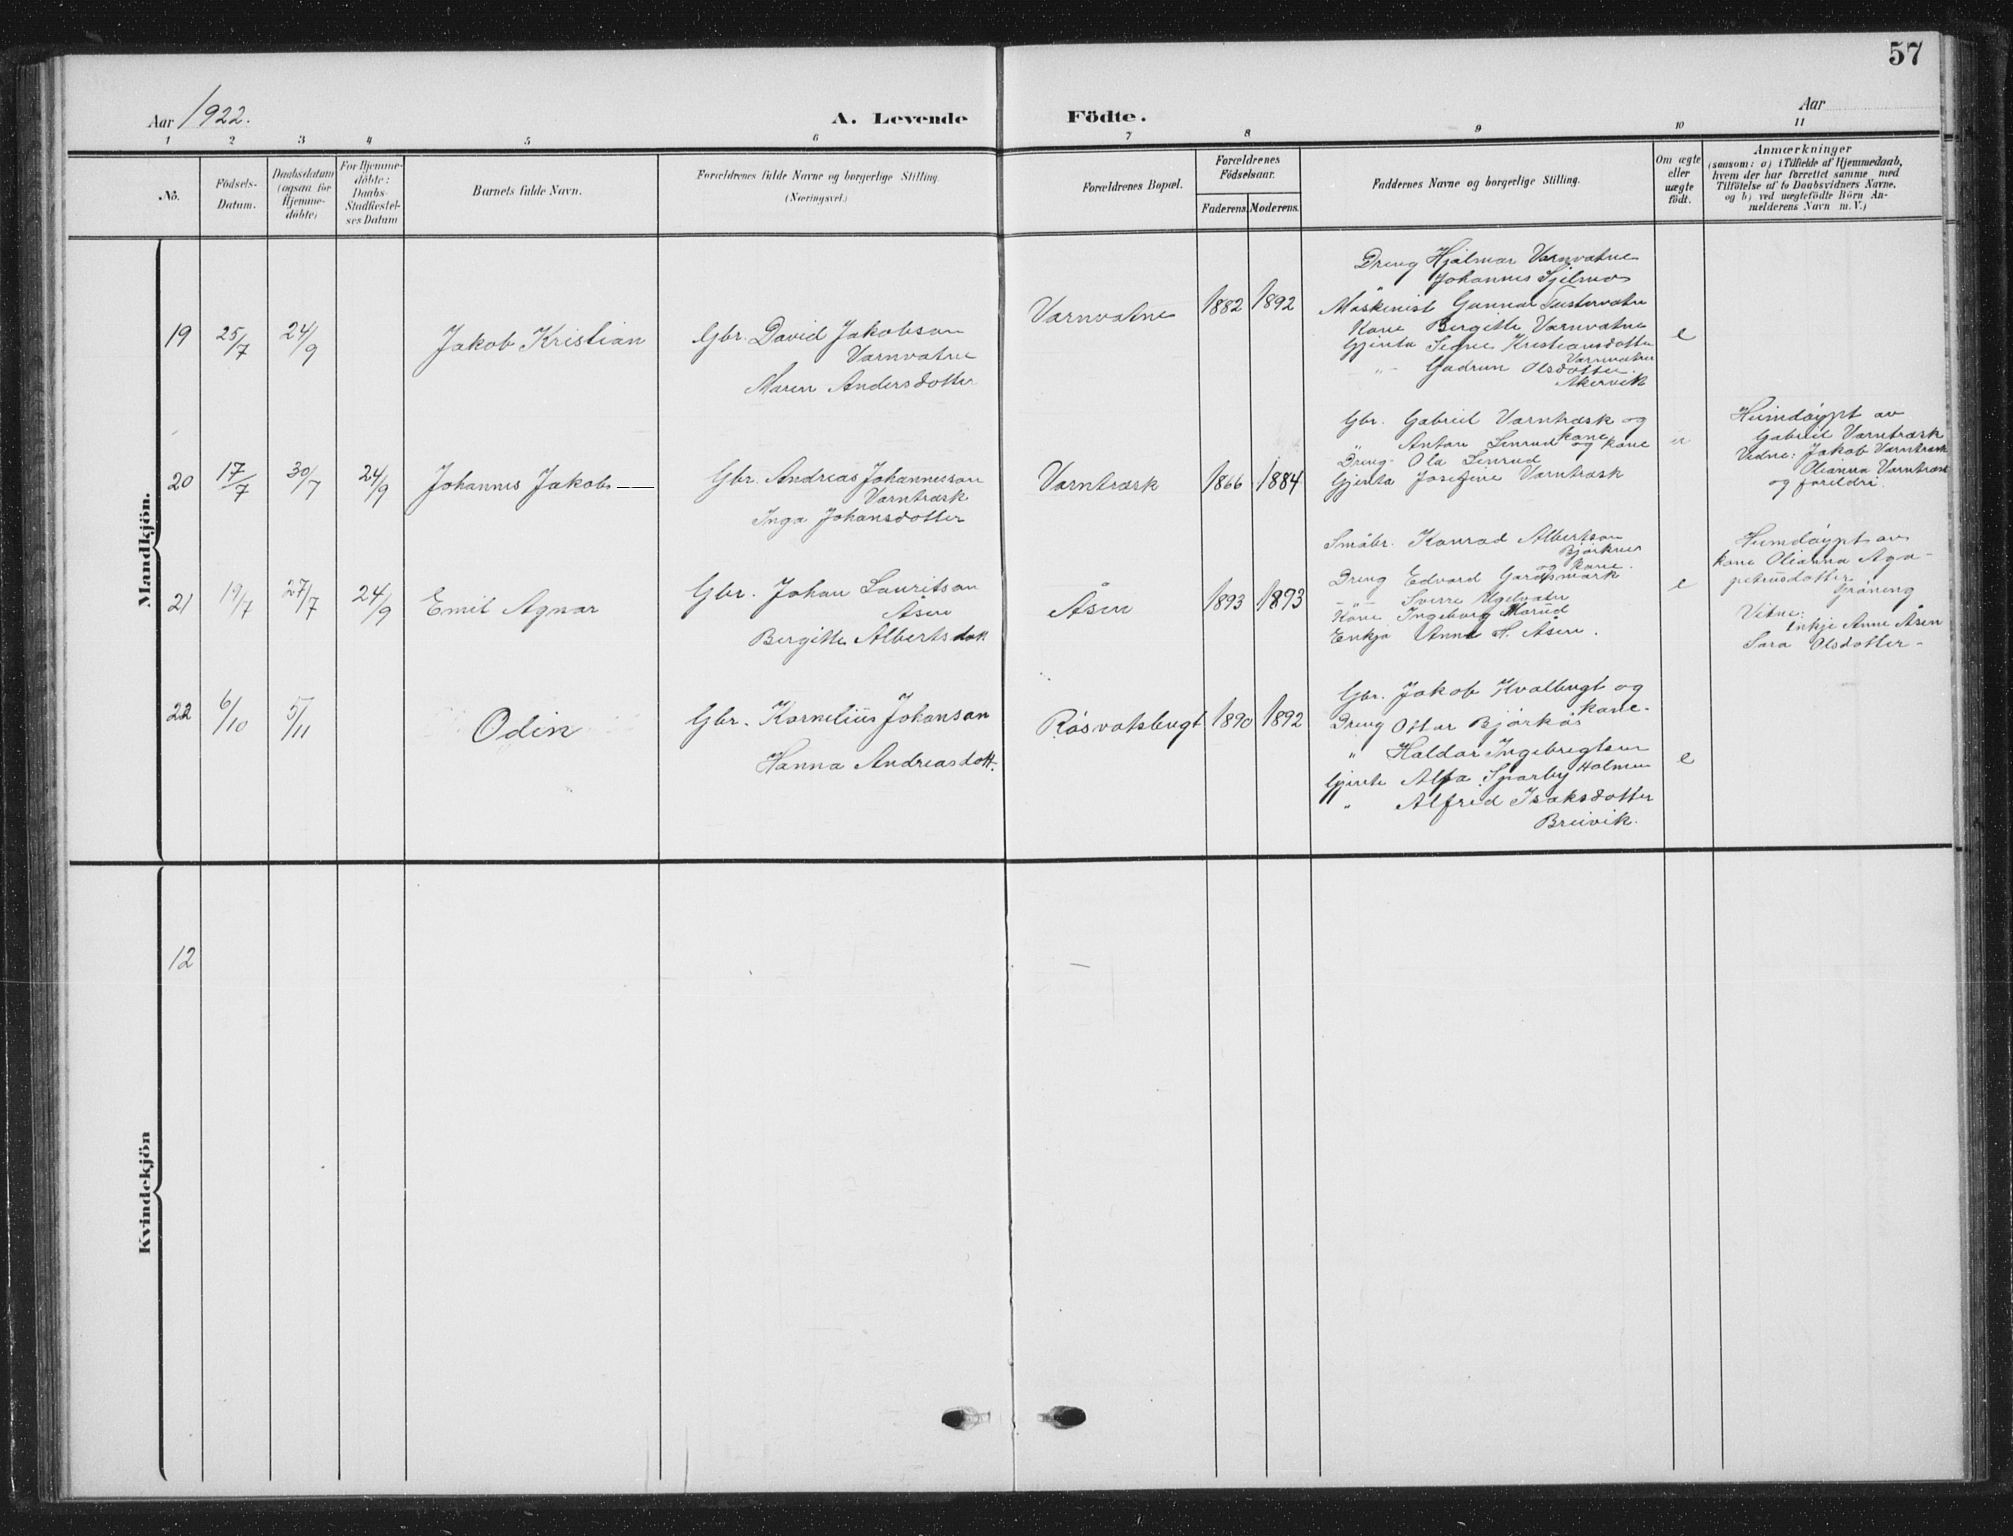 57
Aar 1922.
A. Levende Födte.
Aar
1 2 3 4 5 6 7 8 9 10 11
No.
Födsels-
Datum.
Daabsdatum
(ogsaa for
Hjemme-
döbte)
For Hjemme-
döbte:
Daabs-
Stadfestel-
ses Datum
Barnets fulde Navn.
Forældrenes fulde Navne og borgerlige Stilling.
(Næringsvei.)
Forældrenes Bopæl.
Forældrenes
Födselsaar.
Faderens. Moderens.
Faddernes Navne og borgerlige Stilling.
Om ægte
eller
uægte
födt.
Anmærkninger
(saasom: a) i Tilfælde af Hjemmedaab,
hvem der har forrettet samme, med
Tilföielse af to Daabsvidners Navne,
og b) ved uægtefödte Börn An-
melderens Navn m.V.)
Mandkjön.
19 25/7 24/9 Jakob Kristian
Gbr. David Jakobson
Varnvatne
Maren Andersdotter
Varnvatne 1882 1892
Dreng Hjalmar Varnvatne
Johannes
Maskinist Gunnar Tustervatne
Kone Bergitte Varnvatne
Gjenta Kristiansdotter
Varnvatne
" Gudrun Olsdotter
Akervik
e
20 17/7 30/7 24/9 Johannes Jakob
Gbr. Andreas Johannesson
Varntræsk
Inga Johansdotter
Varntræsk 1866 1884
Gbr. Gabriel Varntræsk og
kone
" Anton Lenrud og kone
Dreng Ola Lenrud
Gjenta Josefine Varntræsk
Heimdöypt av
Gabriel Varntræsk
Vidne: Jakob Varntræsk
Olianna Varntræsk
og foreldri.
21 19/7 27/7 24/9 Emil Agnar
Gbr. Johan Lauritson
Åsen
Bergitte Albertsdott.
Åsen 1893 1893
Småbr. Konrad Albertson
og kone.
Dreng Edvard Gardsmark
" Sverre
Kone Ingeborg
Enkja Anna H. Åsen.
e
Heimdöypt av
kone Olianna Aga-
petrusdotter
Gröning
Vitne:
Enkje Anne Åsen
Sara Olsdotter-
22 6/10 5/11 Odin
Gbr. Kornelius Johanson
Hanna Andreasdott.
Rösvatsbugt 1890 1892
Gbr. Jakob Kvalbugt og
kone-
Dreng Ottar Bjørkås
" Haldor Ingebrigtsen
Holmen
Gjente Alfa Sparby
" Alfrid Isaksdotter
Breivik.
e
Kvindekjön
12